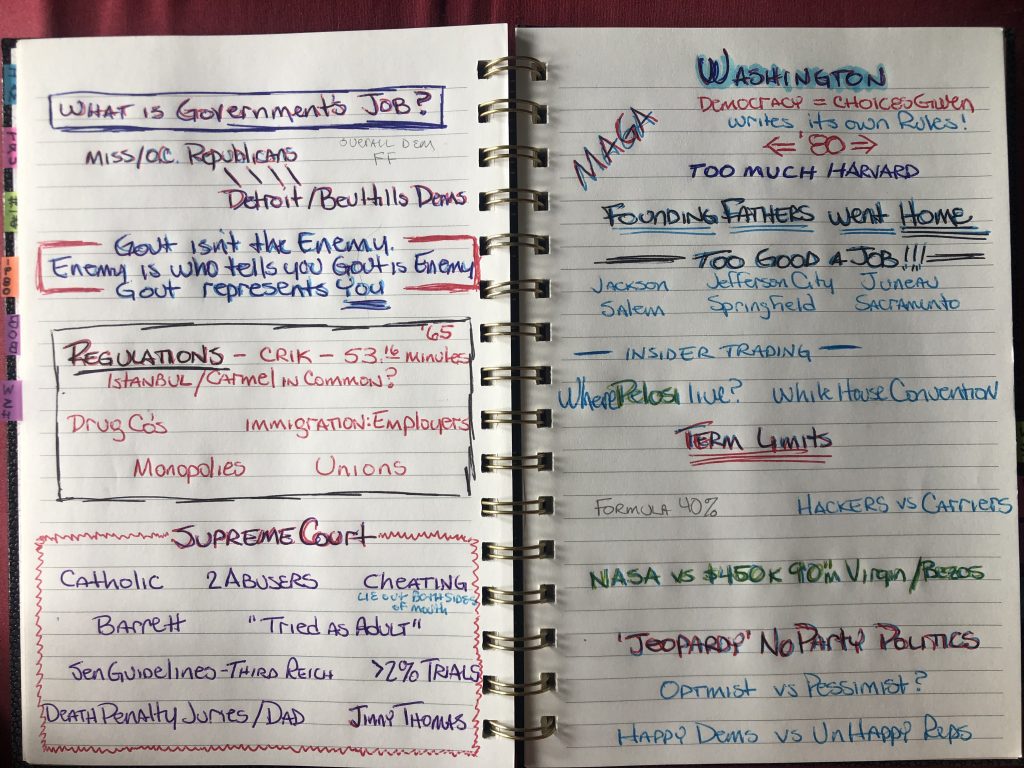 WHAT IS Government's JOB?
MISS/O.C. Republicans
OVERALL DEM
FF
Detroit/BevHills Dems
Govt isn't the Enemy.
Enemy is who tells you Govt is Enemy
Govt represents You
'65
REGULATIONS - CRIK - 53.16 minutes
ISTANBUL/CARMEL IN COMMON?
Drug Co's IMMIGRATION: Employers
Monopolies Unions
SUPREME COURT
Catholic 2 ABUSERS CHEATING
LIE OUT BOTH SIDES
of MOUTH
Barrett "Tried As Adult"
Sen Guidelines - THIRD REICH >2% TRIALS
DEATH PENALTY JURIES/DAD JIMMY THOMAS
WASHINGTON
DEMOCRACY = CHOICES GIVEN
writes its own Rules!
MAGA
⇐ '80 ⇒
TOO MUCH HARVARD
FOUNDING FATHERS went Home
TOO GOOD A JOB!!!
JACKSON Jefferson City JUNEAU
Salem Springfield SACRAMENTO
- INSIDER TRADING -
Where Pelosi live? White House Convention
TERM Limits
FORMULA 40% HACKERS vs CARRIERS
NASA vs $450K 90m Virgin/BEZOS
'JEOPARDY' No PARTY POLITICS
OPTIMIST vs PESSIMIST?
HAPPY Dems vs UnHAPPY Reps